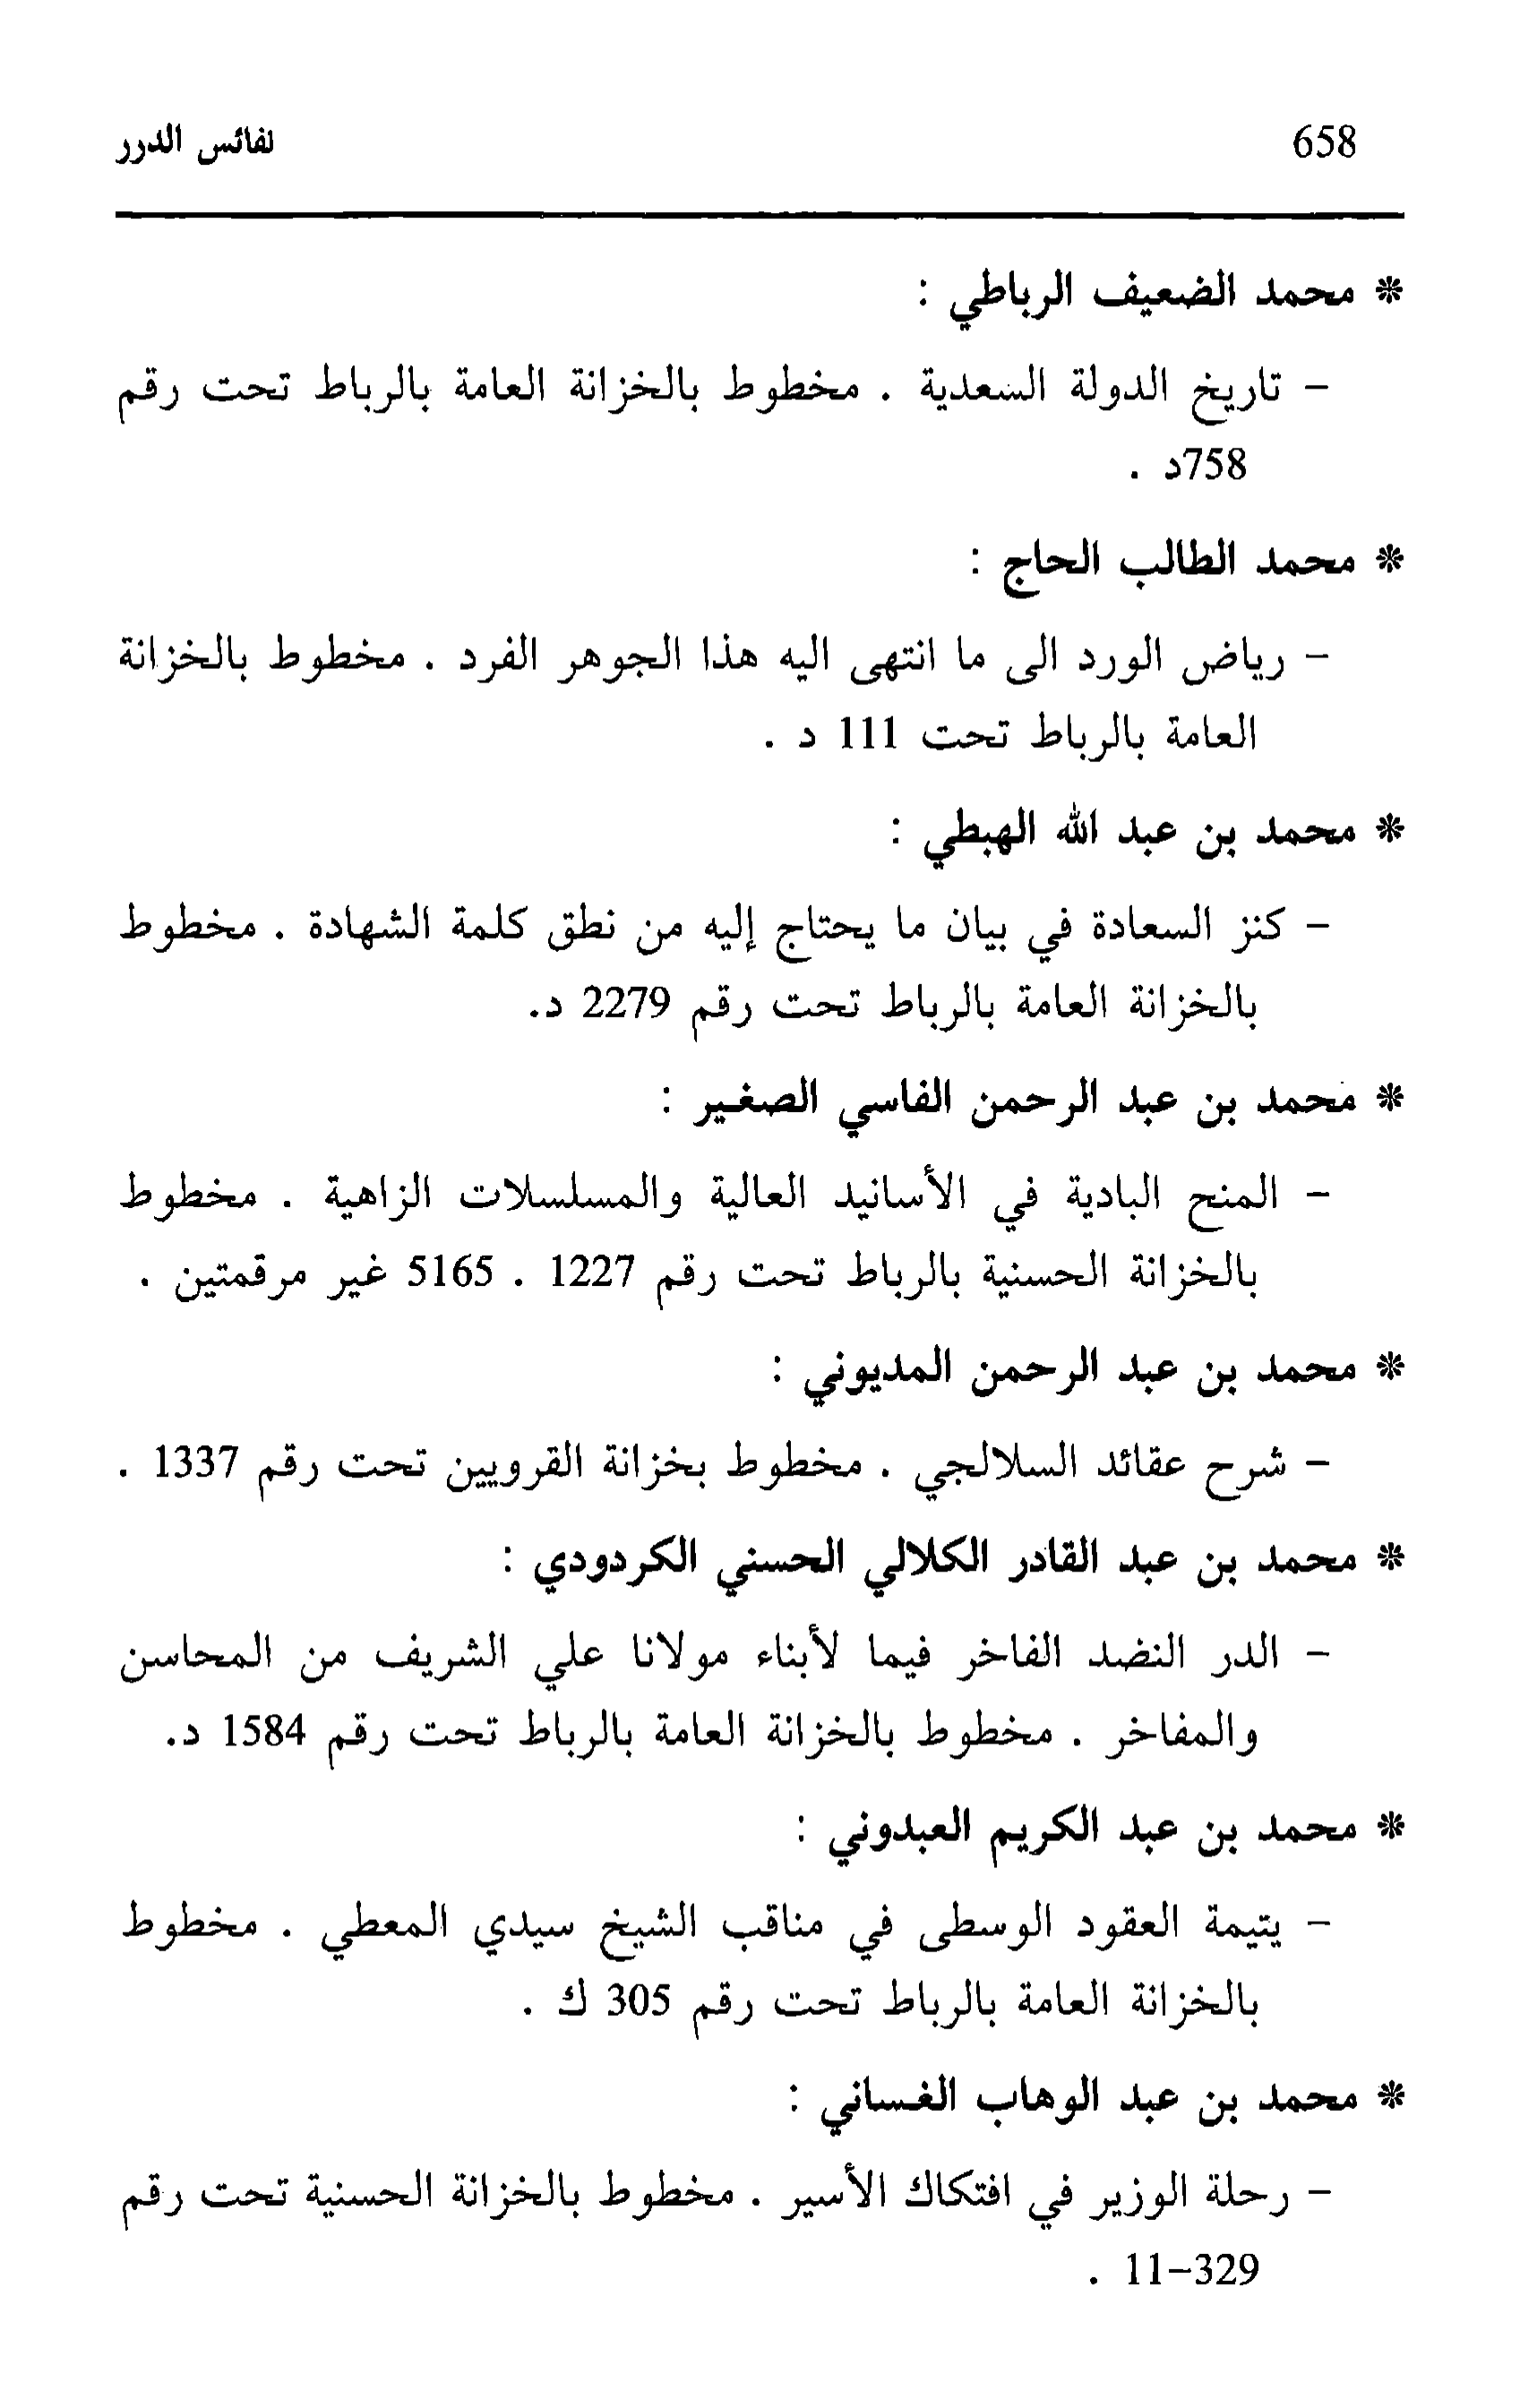 658 نفائس الدرر
* محمد الضعيف الرباطي :
- تاريخ الدولة السعدية . مخطوط بالخزانة العامة بالرباط تحت رقم
758د .
* محمد الطالب الحاج :
- رياض الورد الى ما انتهى اليه هذا الجوهر الفرد . مخطوط بالخزانة
العامة بالرباط تحت 111 د .
* محمد بن عبد الله الهبطي :
- كنز السعادة في بيان ما يحتاج إليه من نطق كلمة الشهادة . مخطوط
بالخزانة العامة بالرباط تحت رقم 2279 د.
* محمد بن عبد الرحمن الفاسي الصغير :
- المنح البادية في الأسانيد العالية والمسلسلات الزاهية . مخطوط
بالخزانة الحسنية بالرباط تحت رقم 1227 . 5165 غير مرقمتين .
* محمد بن عبد الرحمن المديوني :
- شرح عقائد السلالجي . مخطوط بخزانة القرويين تحت رقم 1337 .
* محمد بن عبد القادر الكلالي الحسني الكردودي :
- الدر النضد الفاخر فيما لأبناء مولانا علي الشريف من المحاسن
والمفاخر . مخطوط بالخزانة العامة بالرباط تحت رقم 1584 د.
* محمد بن عبد الكريم العبدوني :
- يتيمة العقود الوسطى في مناقب الشيخ سيدي المعطي . مخطوط
بالخزانة العامة بالرباط تحت رقم 305 ك .
* محمد بن عبد الوهاب الغساني :
- رحلة الوزير في افتكاك الأسير . مخطوط بالخزانة الحسنية تحت رقم
11-329 .